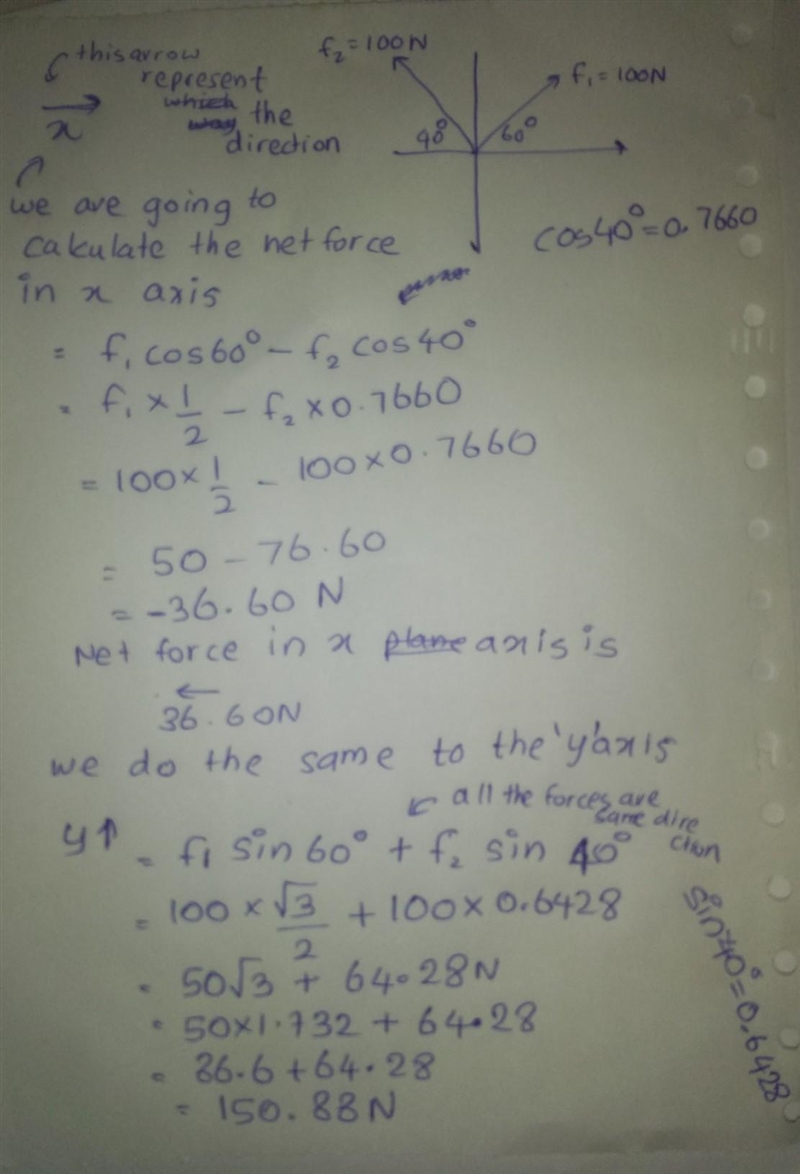 this arrow
represent
which
way the
direction
x
f₂ = 100N
f₁ = 100N
40°
60°
cos40° = 0.7660
we are going to
calculate the net force
in x axis
= f₁ cos60° - f₂ cos40°
= f₁ × 1/2 - f₂ × 0.7660
= 100 × 1/2 - 100 × 0.7660
= 50 - 76.60
= -36.60 N
Net force in x plane axis is
←
36.60N
we do the same to the 'y' axis
all the forces are
same dire
ction
y↑ = f₁ sin 60° + f₂ sin 40°
= 100 × √3/2 + 100 × 0.6428
= 50√3 + 64.28N
= 50×1.732 + 64.28
= 86.6 + 64.28
= 150.88N
sin40° = 0.6428